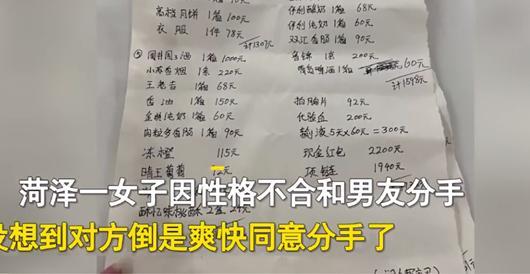 高档月饼 1箱 100元
衣服 1件 78元
计1307元
⑤ 1箱 1000元
小苏香烟 1条 220元
王老吉 1箱 68元
1箱 150元
金典纯奶 1箱 60元
肉粒多香肠 1箱 90元
冻橙 115元
晴王葡萄 12元
伊利酸奶 1箱 68元
伊利纯奶 1箱 60元
双汇香肠 1箱 90元
1条 200元
青岛啤酒 60元
计1598元
拍胸片 92元
化验血 200元
输液5天x60元=300元
现金红包 2200元
项链 1940元
菏泽一女子因性格不合和男友分手
没想到对方倒是爽快同意分手了